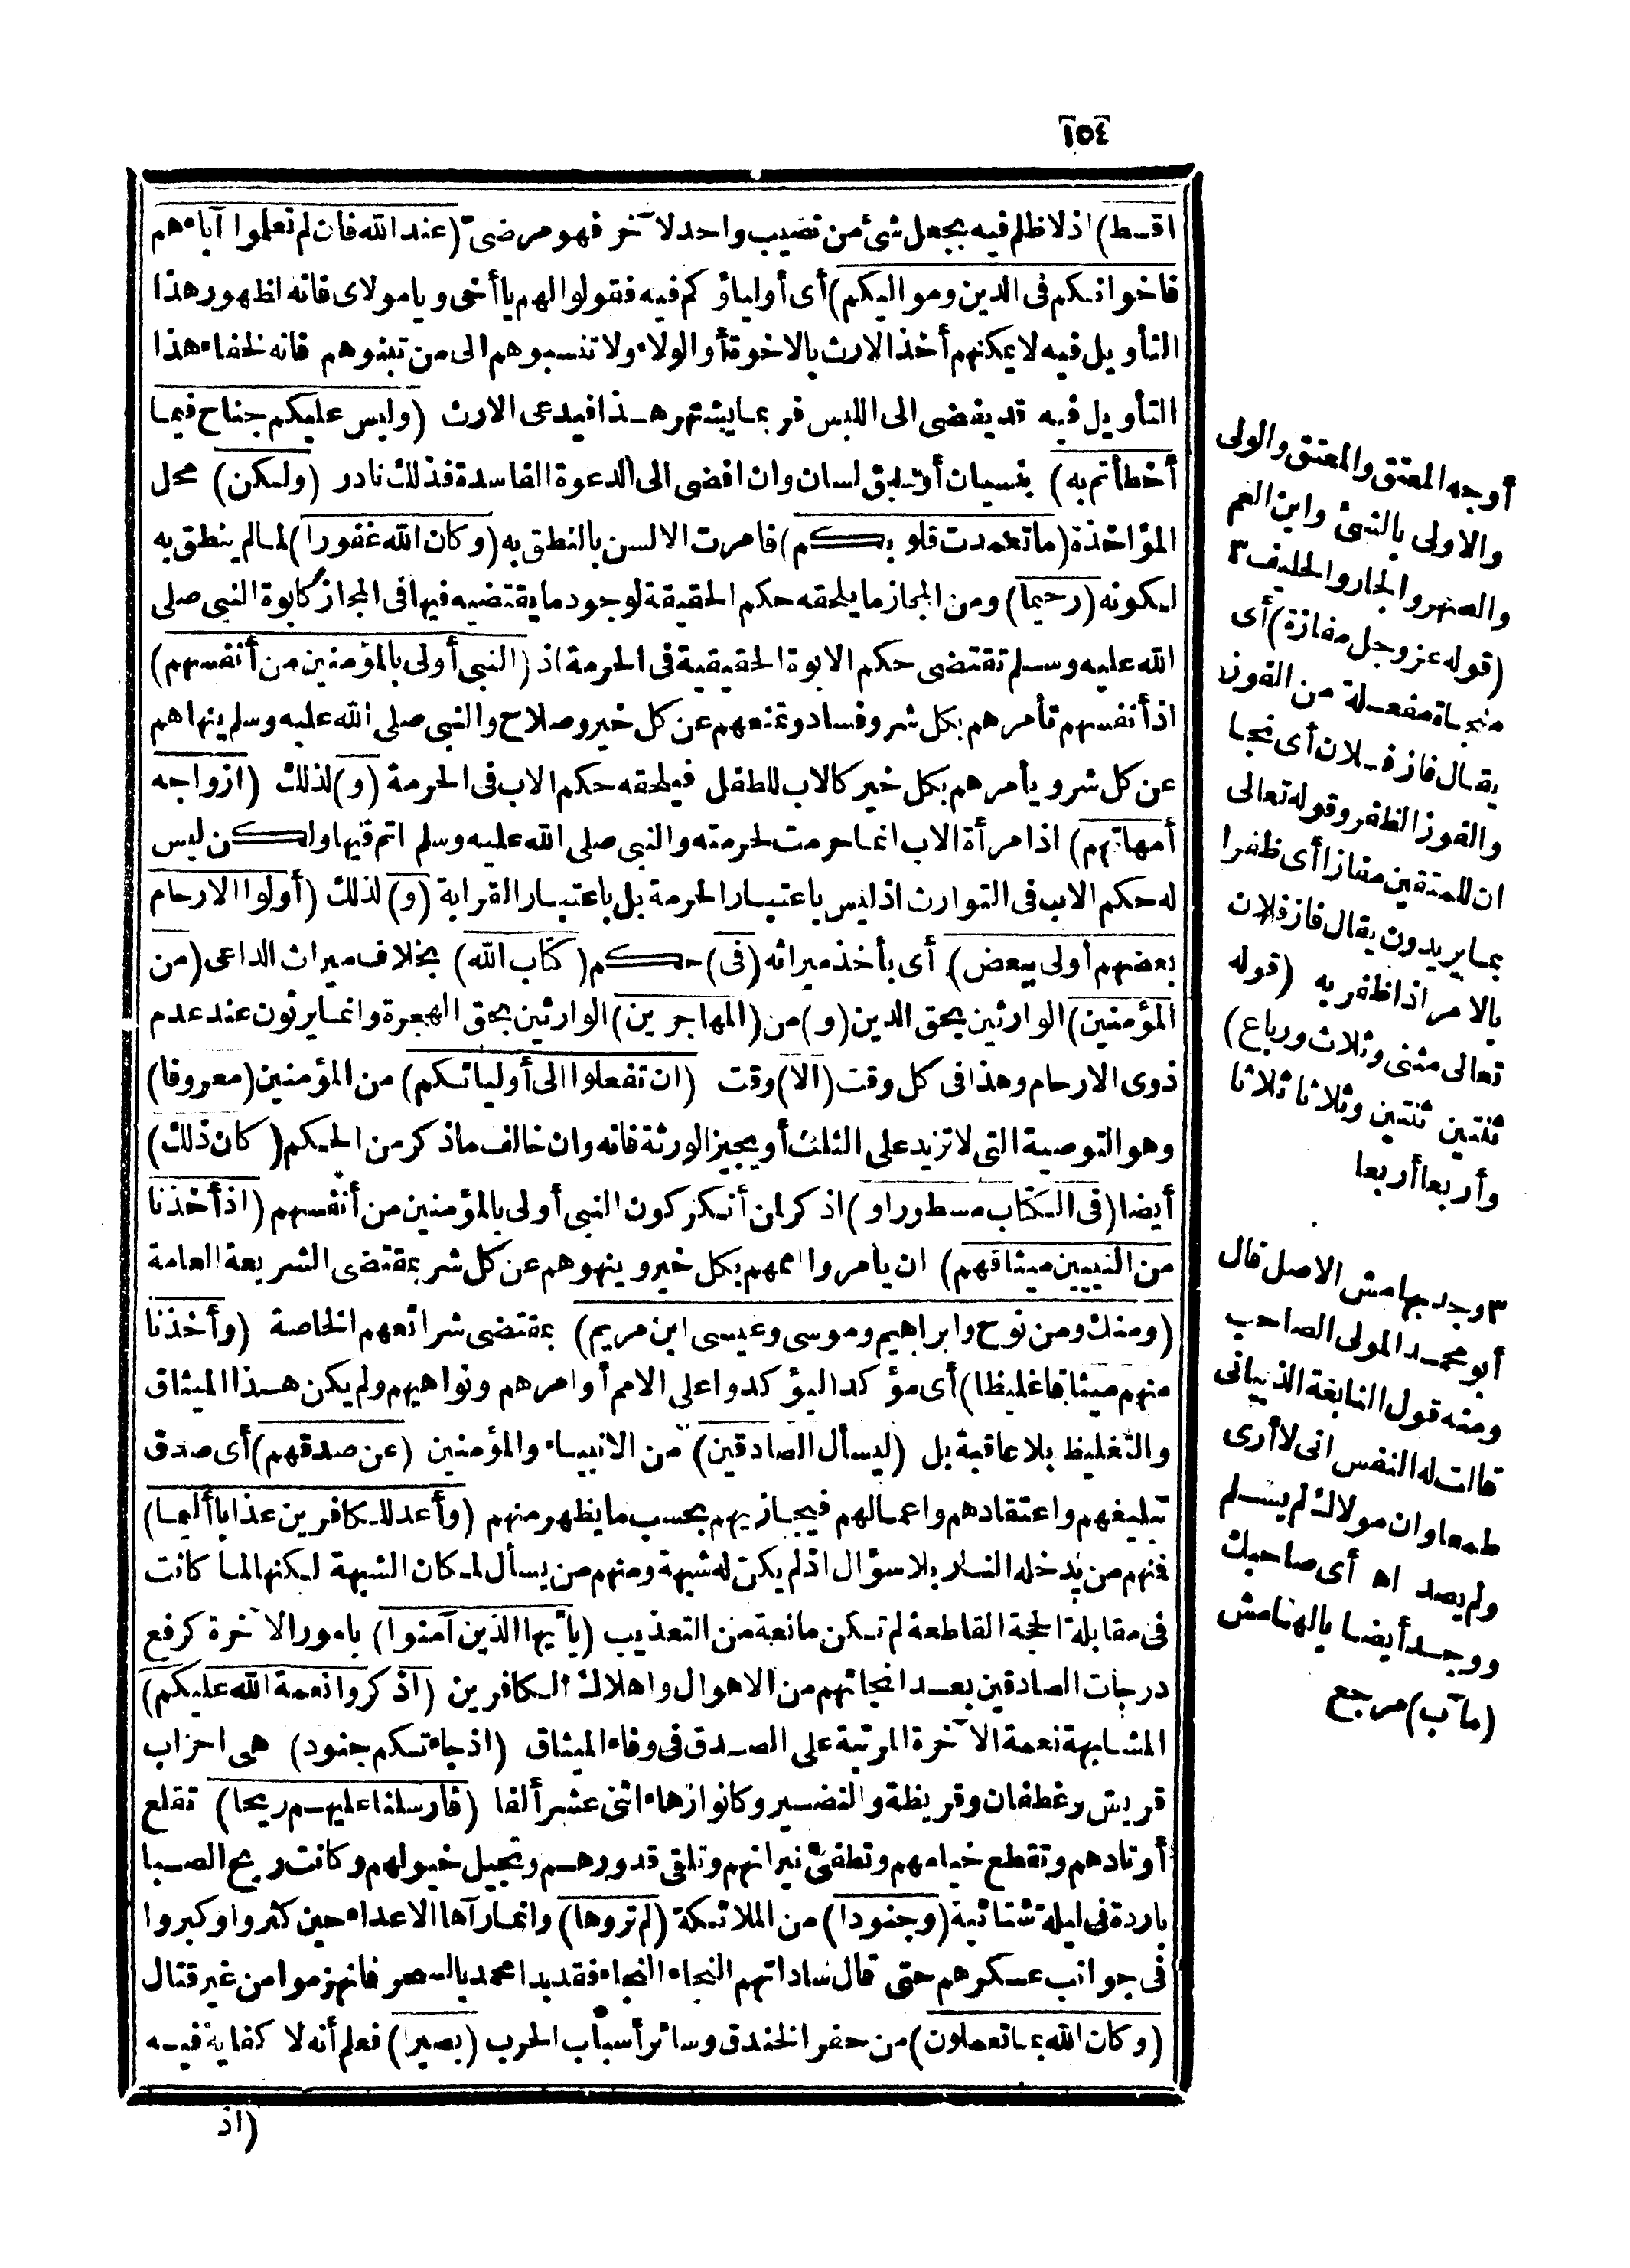 ١٥٤
اقسط) اذ لا ظلم فيه بجعل شئ من نصيب واحد لآخر فهو مرضى (عند الله فان لم تعلموا آباءهم
فاخوانكم فى الدين ومواليكم) أى أولياؤكم فيه فقولوا لهم يا أخى ويا مولاى فانه لظهور هذا
التأويل فيه لا يمكنهم أخذ الارث بالاخوة أو الولاء ولا تنسبوهم الى من تبنوهم فانه لخفاء هذا
التأويل فيه قد يفضى الى اللبس فربما يشتهر هذا فيدعى الارث (وليس عليكم جناح فيما
أخطأتم به) بنسيان أو سبق لسان وان افضى الى الدعوة الفاسدة فذلك نادر (ولكن) محل
المؤاخذة (ما تعمدت قلوبكم) فامرت الالسن بالنطق به (وكان الله غفورا) لما لم ينطق به
لكونه (رحيما) ومن المجاز ما يلحقه حكم الحقيقة لوجود ما يقتضيه فيها فى المجاز كابوة النبى صلى
الله عليه وسلم تقتضى حكم الابوة الحقيقية فى الحرمة اذ (النبى أولى بالمؤمنين من أنفسهم)
اذ أنفسهم تأمرهم بكل شر وفساد وتمنعهم عن كل خير وصلاح والنبى صلى الله عليه وسلم ينهاهم
عن كل شر ويأمرهم بكل خير كالاب للطفل فيلحقه حكم الاب فى الحرمة (و) لذلك (ازواجه
أمهاتهم) اذ امرأة الاب انما حرمت لحرمته والنبى صلى الله عليه وسلم اتم فيها ولكن ليس
له حكم الاب فى التوارث اذ ليس باعتبار الحرمة بل باعتبار القرابة (و) لذلك (أولوا الارحام
بعضهم أولى ببعض) أى بأخذ ميراثه (فى) حكم (كتاب الله) بخلاف ميراث الداعى (من
المؤمنين) الوارثين بحق الدين (و) من (المهاجرين) الوارثين بحق الهجرة وانما يرثون عند عدم
ذوى الارحام وهذا فى كل وقت (الا) وقت (ان تفعلوا الى أوليائكم) من المؤمنين (معروفا)
وهو التوصية التى لا تزيد على الثلث أو يجيز الورثة فانه وان خالف ما ذكر من الحكم (كان ذلك)
أيضا (فى الكتاب مسطورا و) اذكر لمن أنكر كون النبى أولى بالمؤمنين من أنفسهم (اذ أخذنا
من النبيين ميثاقهم) ان يأمروا اممهم بكل خير وينهوهم عن كل شر بمقتضى الشريعة العامة
(ومنك ومن نوح وابراهيم وموسى وعيسى ابن مريم) بمقتضى شرائعهم الخاصة (وأخذنا
منهم ميثاقا غليظا) أى مؤكدا ليؤكدوا على الامم أوامرهم ونواهيهم ولم يكن هذا الميثاق
والتغليظ بلا عاقبة بل (ليسأل الصادقين) من الانبياء والمؤمنين (عن صدقهم) أى صدق
تبليغهم واعتقادهم واعمالهم فيجازيهم بحسب ما يظهر منهم (وأعد للكافرين عذابا أليما)
فمنهم من يدخله النار بلا سؤال اذ لم يكن له شبهة ومنهم من يسأل لمكان الشبهة لكنها لما كانت
فى مقابلة الحجة القاطعة لم تكن مانعة من التعذيب (يا أيها الذين آمنوا) بامور الآخرة كرفع
درجات الصادقين بعد انجائهم من الاهوال واهلاك الكافرين (اذكروا نعمة الله عليكم)
المشابهة نعمة الآخرة المرتبة على الصدق فى وفاء الميثاق (اذ جاءتكم جنود) هى احزاب
قريش وغطفان وقريظة والنضير وكانوا زهاء اثنى عشر ألفا (فأرسلنا عليهم ريحا) تقلع
أوتادهم وتقطع خيامهم وتطفئ نيرانهم وتلقى قدورهم وتجيل خيولهم وكانت ريح الصبا
باردة فى ليلة شتائية (وجنودا) من الملائكة (لم تروها) وانما رآها الاعداء حين كثروا وكبروا
فى جوانب عسكرهم حتى قال ساداتهم النجاء النجاء فقد بدا محمد بالسحر فانهزموا من غير قتال
(وكان الله بما تعملون) من حفر الخندق وسائر أسباب الحرب (بصيرا) فعلم أنه لا كفاية فيه
(اذ
أوجه المعتق والمعتق والولى
والاولى بالشئ وابن العم
والصهر والجار والحليف ٣
(قوله عز وجل مفازة) أى
منجاة مفعلة من الفوز
يقال فاز فلان أى نجا
والفوز الظفر وقوله تعالى
ان للمتقين مفازا أى ظفرا
بما يريدون يقال فاز فلان
بالامر اذا ظفر به (قوله
تعالى مثنى وثلاث ورباع)
ثنتين ثنتين وثلاثا ثلاثا
وأربعا أربعا
٣ وجد بهامش الاصل قال
أبو محمد المولى الصاحب
ومنه قول النابغة الذبيانى
قالت له النفس انى لا أرى
طمعا وان مولاك لم يسلم
ولم يصد اه أى صاحبك
ووجد أيضا بالهامش
(مآب) مرجع